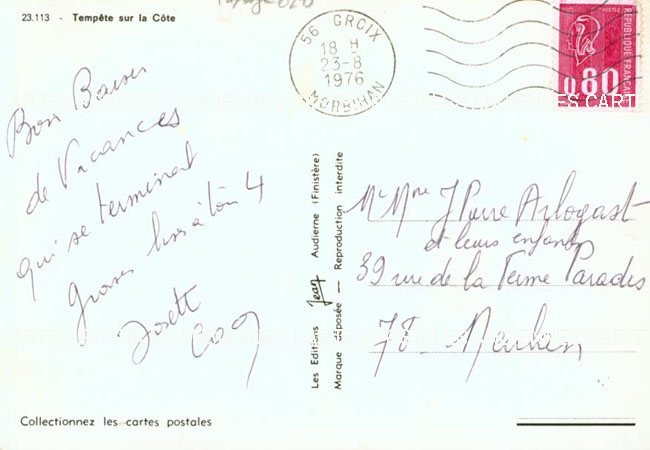 23.113 - Tempête sur la Côte
56 GROIX
18 H
23-8
1976
MORBIHAN
POSTES
RÉPUBLIQUE FRANÇAISE
0,80
Bons Baisers
de Vacances
qui se terminent
grosses bises à tous 4
Josett
Les Editions Jean Audierne (Finistère)
Marque déposée — Reproduction interdite
Mr Mme J Pierre Arbogast
et leurs enfants
39 rue de la Ferme Paradis
78 -
Collectionnez les cartes postales